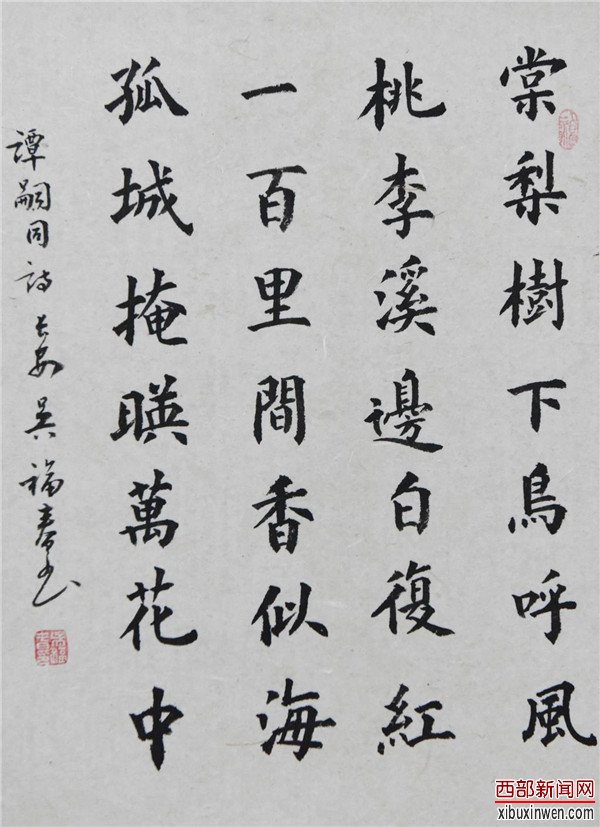 棠梨樹下鳥呼風
桃李溪邊白復紅
一百里間香似海
孤城掩暎萬花中
譚嗣同詩 長安 吳福春书
西部新闻网
xibuxinwen.com